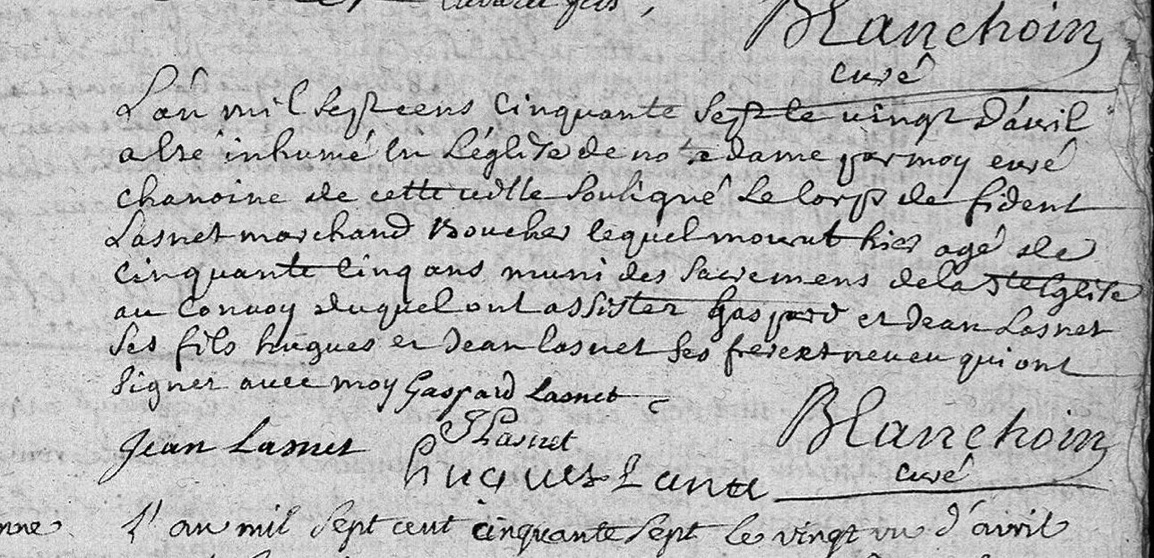 Blanchoin
curé
L'an mil sept cens cinquante sept le vingt d'avril
a été inhumé en l'église de notre dame par moy curé
chanoine de cette ville souligné le corps de fident
Lasnet marchand Boucher lequel mourut hier agé de
cinquante cinq ans muni des sacremens de la Ste Eglise
au convoy duquel ont assister Gaspard et Jean Lasnet
ses fils hugues et Jean Lasnet ses frere et neveu qui ont
signer avec moy Gaspard Lasnet
Jean Lasnet
JLasnet
hugues Lanet
Blanchoin
curé
L'an mil sept cent cinquante sept le vingt un d'avril